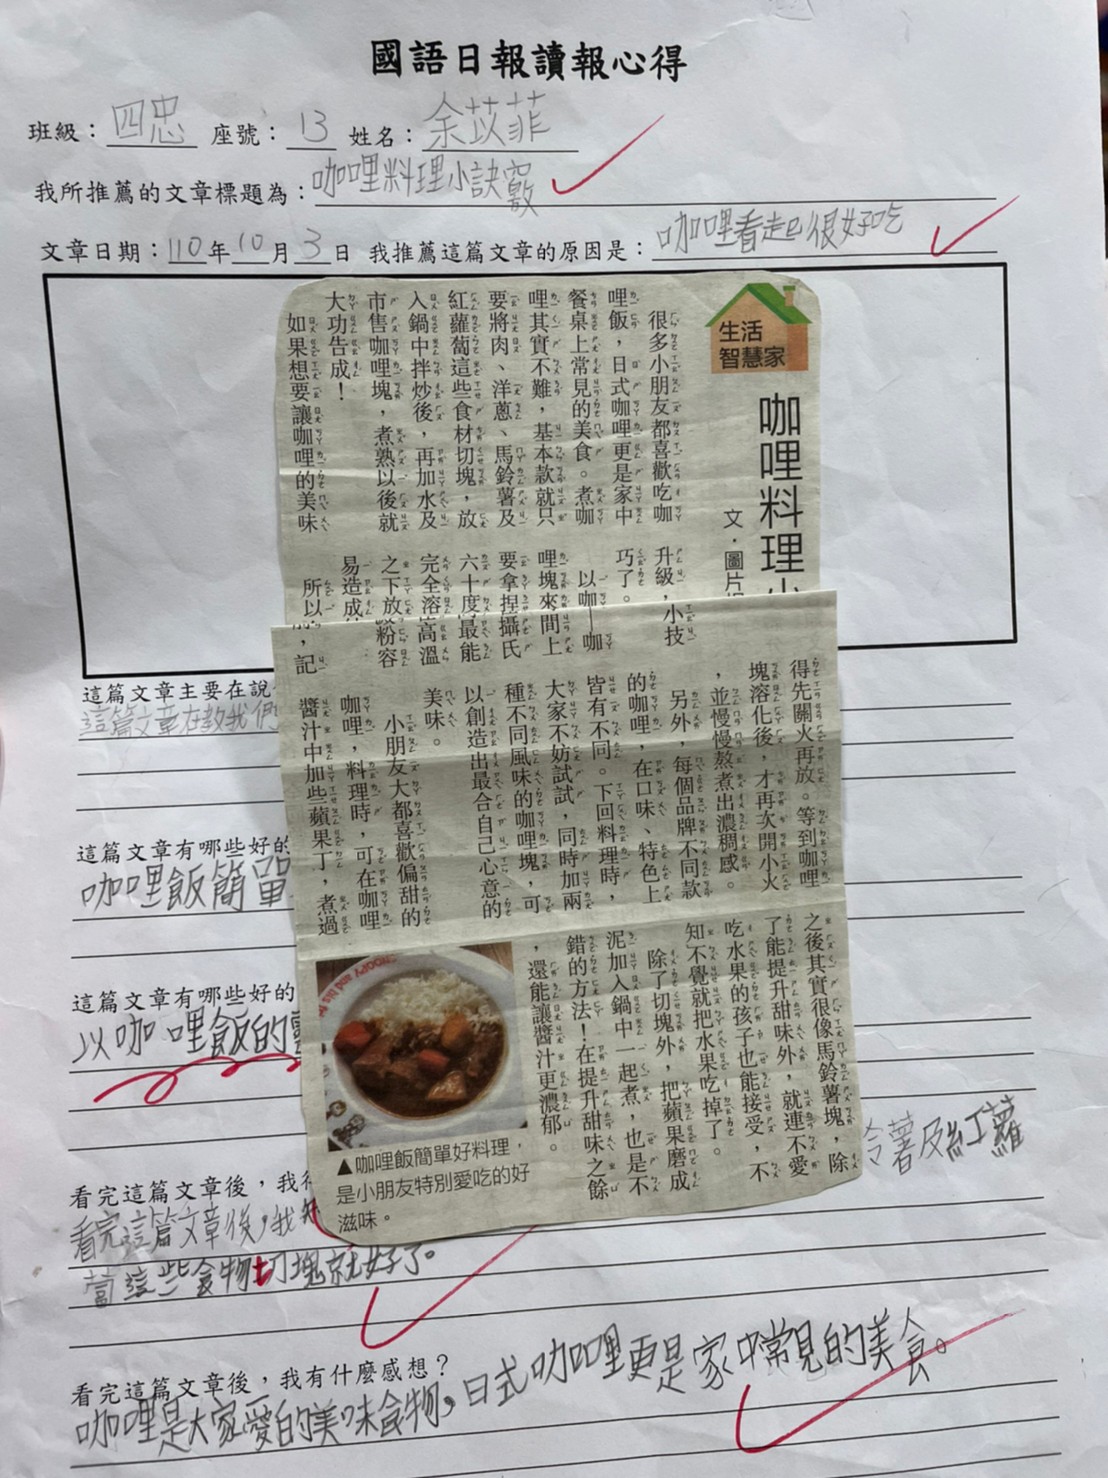 國語日報讀報心得
班級：四忠 座號：13 姓名：余苡菲
我所推薦的文章標題為：咖哩料理小訣竅
文章日期：110年10月3日 我推薦這篇文章的原因是：咖哩看起巳很好吃
生活
智慧家
咖哩料理小
文．圖片
很多小朋友都喜歡吃咖
哩飯，日式咖哩更是家中
餐桌上常見的美食。煮咖
哩其實不難，基本款就只
要將肉、洋蔥、馬鈴薯及
紅蘿蔔這些食材切塊，放
入鍋中拌炒後，再加水及
市售咖哩塊，煮熟以後就
大功告成！
如果想要讓咖哩的美味
升級，小技
巧了。
以咖
哩塊來
要拿捏
六十度
完全溶
之下放
易造成
所以
咖
間上
攝氏
最能
高溫
粉容
，記
得先關火再放。等到咖哩
塊溶化後，才再次開小火
，並慢慢熬煮出濃稠感。
另外，每個品牌不同款
的咖哩，在口味、特色上
皆有不同。下回料理時，
大家不妨試試，同時加兩
種不同風味的咖哩塊，可
以創造出最合自己心意的
美味。
小朋友大都喜歡偏甜的
咖哩，料理時，可在咖哩
醬汁中加些蘋果丁，煮過
之後其實很像馬鈴薯塊，除
了能提升甜味外，就連不愛
吃水果的孩子也能接受，不
知不覺就把水果吃掉了。
除了切塊外，把蘋果磨成
泥加入鍋中一起煮，也是不
錯的方法！在提升甜味之餘
，還能讓醬汁更濃郁。
▲咖哩飯簡單好料理，
是小朋友特別愛吃的好
滋味。
這篇文章主要在說
這篇文章在教我們
這篇文章有哪些好的
咖哩飯簡單
這篇文章有哪些好的
以咖哩飯的
看完這篇文章後，我
看完這篇文章後，我 薯及紅蘿
蔔這些食物切塊就好了。
看完這篇文章後，我有什麼感想？
咖哩是大家愛的美味食物，日式咖哩更是家中常見的美食。